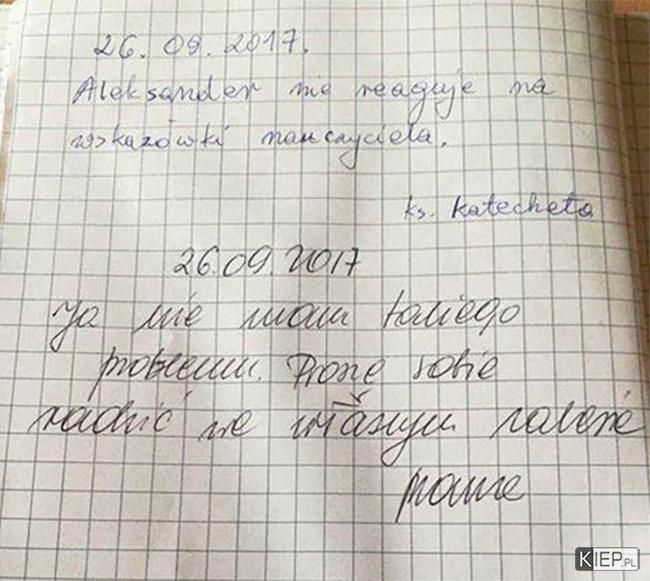 26. 09. 2017.
Aleksander nie reaguje na
wskazówki nauczyciela.
ks. katecheta
26.09.2017
Ja nie mam takiego
problemu. Proszę sobie
radzić we własnym zakresie
KIEP.PL